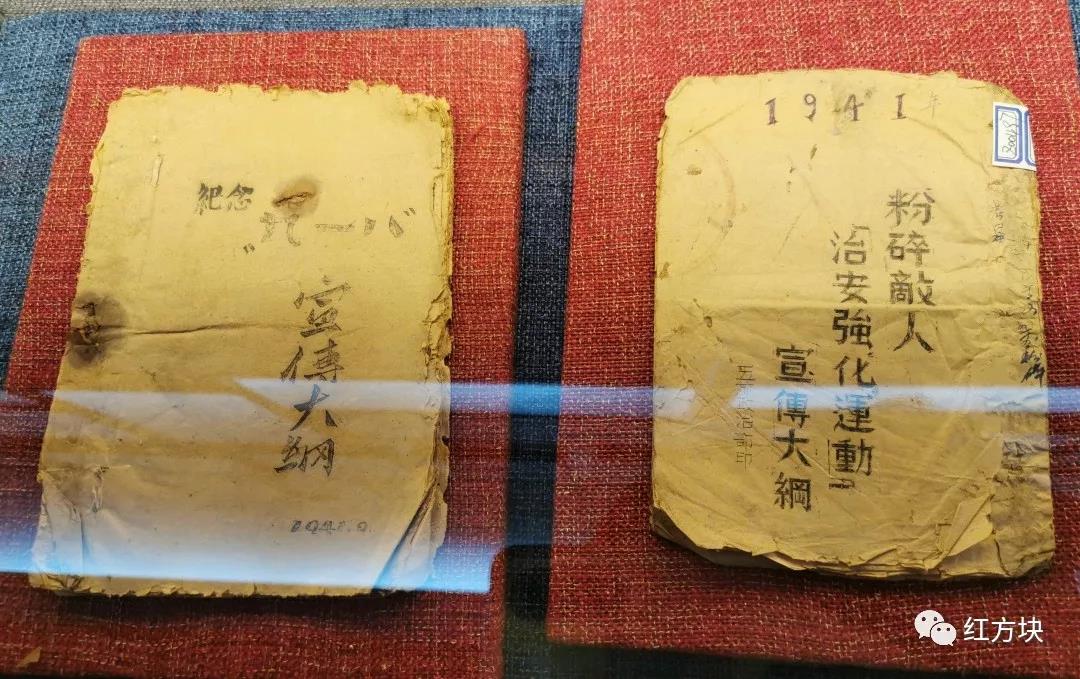 紀念
"九一八"
宣傳大綱
1941.9.
1941年
粉碎敵人
治安強化運動
宣傳大綱
红方块